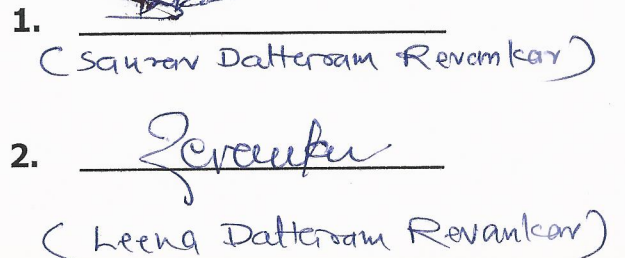 1.
(Saurav Datteram Revankar)
2. Revankar
(Leena Datteram Revankar)